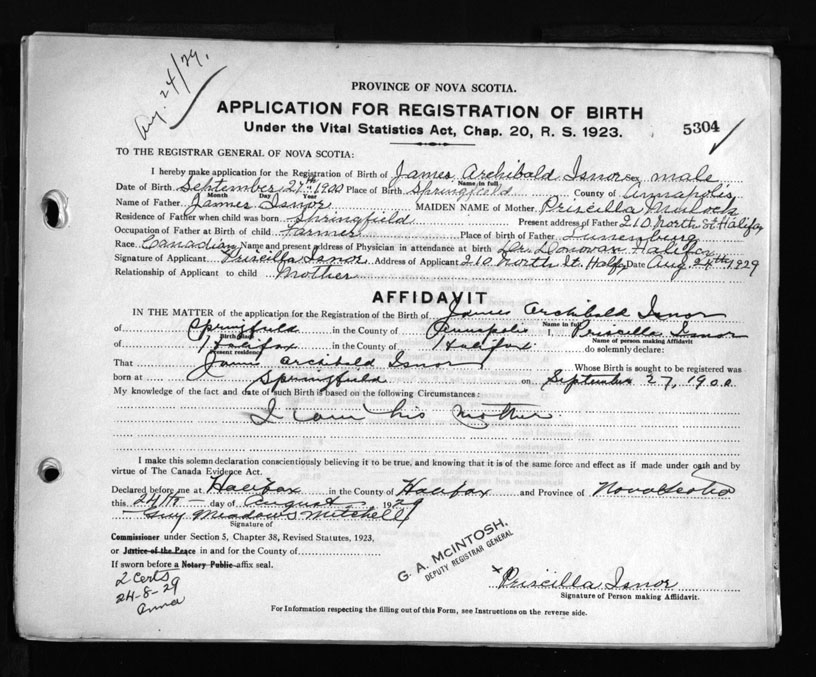 Aug. 24/29.
PROVINCE OF NOVA SCOTIA.
APPLICATION FOR REGISTRATION OF BIRTH
Under the Vital Statistics Act, Chap. 20, R. S. 1923.
5304
TO THE REGISTRAR GENERAL OF NOVA SCOTIA:
I hereby make application for the Registration of Birth of James Archibald Isnor Sex male
Name in full
Date of Birth September 27th 1900 Place of Birth Springfield County of Annapolis
Month Day Year
Name of Father James Isnor MAIDEN NAME of Mother Priscilla
Residence of Father when child was born Springfield Present address of Father 210 North St Halifax
Occupation of Father at Birth of child Farmer Place of birth of Father Lunenburg
Race Canadian Name and present address of Physician in attendance at birth Dr. Donovan Halifax
Signature of Applicant Priscilla Isnor Address of Applicant 210 North St. Halfx Date Aug 24th 1929
Relationship of Applicant to child Mother
AFFIDAVIT
IN THE MATTER of the application for the Registration of Birth of James Archibald Isnor
Name in full
of Springfield in the County of Annapolis I, Priscilla Isnor
Birth place Name of person making Affidavit
of Halifax in the County of Halifax do solemnly declare:
Present residence
That James Archibald Isnor Whose Birth is sought to be registered was
born at Springfield on September 27, 1900
My knowledge of the fact and date of such Birth is based on the following Circumstances:
I am his Mother
I make this solemn declaration conscientiously believing it to be true, and knowing that it is of the same force and effect as if made under oath and by
virtue of The Canada Evidence Act.
Declared before me at Halifax in the County of Halifax and Province of Nova Scotia
this 24th day of August 1929
Guy Meadows Mitchell
Signature of
Commissioner under Section 5, Chapter 38, Revised Statutes, 1923,
or Justice of the Peace in and for the County of
If sworn before a Notary Public affix seal.
G. A. McINTOSH,
DEPUTY REGISTRAR GENERAL
2 Certs
24-8-29
x Priscilla Isnor
Signature of Person making Affidavit.
For Information respecting the filling out of this Form, see Instructions on the reverse side.